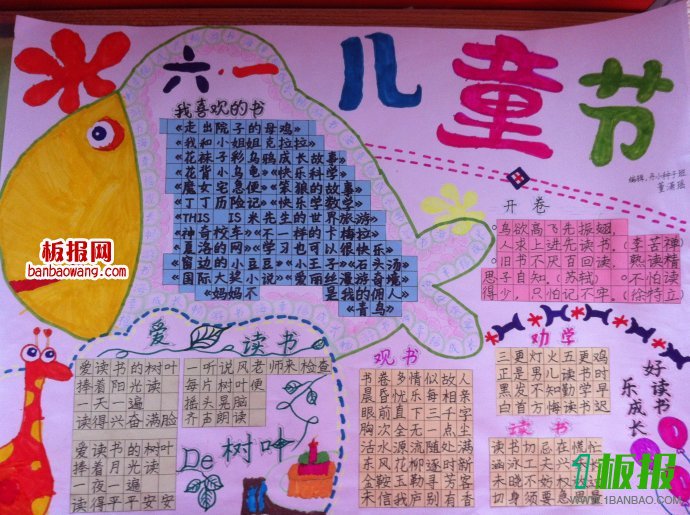 六·一儿童节
我喜欢的书
《走出院子的母鸡》
《我和小姐姐克拉拉》
《花袜子彩乌鸦成长故事》
《花背小乌龟》《快乐科学》
《魔女宅急便》《笨狼的故事》
《丁丁历险记》《快乐学数学》
《THIS IS米先生的世界旅游》
《神奇校车》《不一样的卡梅拉》
《夏洛的网》《学习也可以很快乐》
《窗边的小豆豆》《小王子》《石头汤》
《国际大奖小说》《爱丽丝漫游奇境》
《妈妈不是我的佣人》
《青鸟》
编辑:丹小种子班
董潇瑶
开卷
鸟欲高飞先振翅,
人求上进先读书。(李苦禅)
旧书不厌百回读,熟读精
思子自知。(苏轼) 不怕读
得少,只怕记不牢。(徐特立)
爱读书
De树叶
爱读书的树叶
捧着阳光读
一天一遍
读得兴奋满脸
一听说风老师来检查
每片树叶便
摇头晃脑
齐声朗读
爱读书的树叶
捧着月光读
一夜一遍
读得平平安安
观书
书卷多情似故人
晨昏忧乐每相亲
眼前直下三千字
胸次全无一点尘
活水源流随处满
东风花柳逐时新
金鞍玉勒寻芳客
未信我庐别有春
劝学
三更灯火五更鸡
正是男儿读书时
黑发不知勤学早
白首方悔读书迟
读书
读书切忌在慌忙
涵泳工夫兴味长
未晓不妨权放过
切身须要急思量
好读书
乐成长
板报网
banbaowang.com
1板报
WWW.1BANBAO.COM